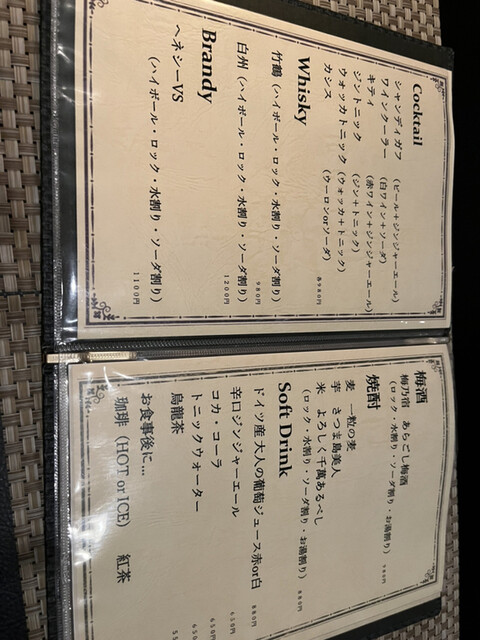 Cocktail
シャンディガフ (ビール+ジンジャーエール)
ワインクーラー (白ワイン+ソーダ)
キティ (赤ワイン+ジンジャーエール)
ジントニック (ジン+トニック)
ウオッカトニック (ウオッカ+トニック)
カシス (ウーロンorソーダ)
各980円
Whisky
竹鶴 (ハイボール・ロック・水割り・ソーダ割り)
980円
白州 (ハイボール・ロック・水割り・ソーダ割り)
1200円
Brandy
ヘネシーVS
(ハイボール・ロック・水割り・ソーダ割り)
1100円
梅酒
梅乃宿 あらごし梅酒
(ロック・水割り・ソーダ割り・お湯割り)
980円
焼酎
麦 一粒の麦
芋 さつま島美人
米 よろしく千萬あるべし
(ロック・水割り・ソーダ割り・お湯割り)
880円
Soft Drink
ドイツ産 大人の葡萄ジュース赤or白
880円
辛口ジンジャーエール
650円
コカ・コーラ
650円
トニックウォーター
650
烏龍茶
55
お食事後に…
珈琲 (HOT or ICE) 紅茶